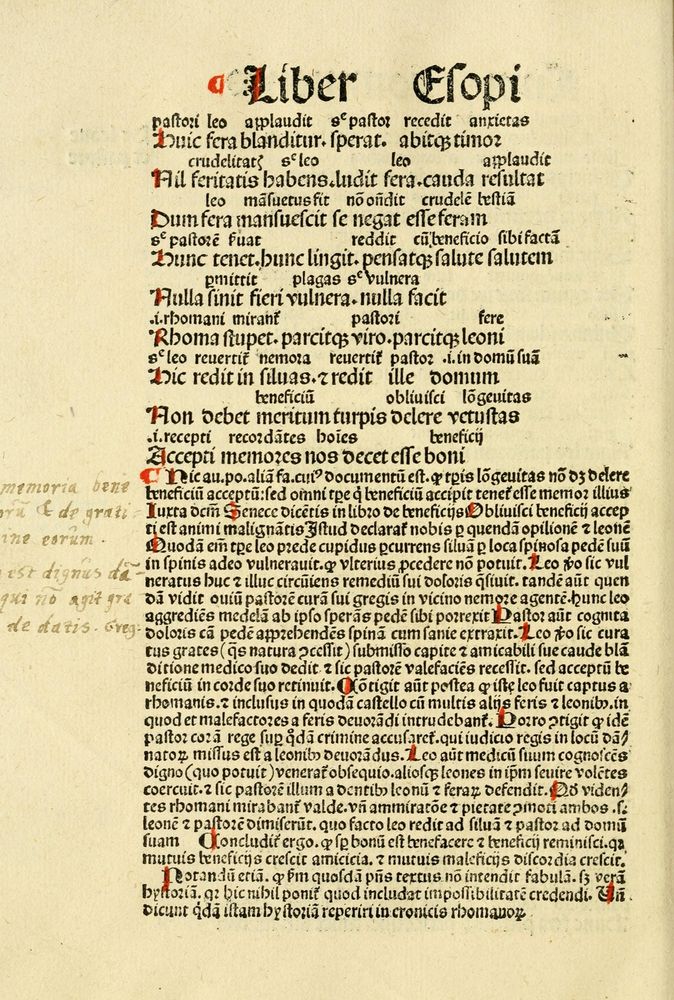 Liber Esopi
pastori leo applaudit sc pastor recedit anxietas
Huic fera blanditur. sperat. abitqꝫ timor
crudelitatꝫ sc leo leo applaudit
Nil feritatis habens. ludit fera. cauda resultat
leo māsuetus fit nō oñdit crudelē bestiā
Dum fera mansuescit se negat esse feram
sc pastorē ẜuat reddit cū beneficio sibi factā
Hunc tenet. hunc lingit. pensatqꝫ salute salutem
ꝑmittit plagas sc vulnera
Nulla sinit fieri vulnera. nulla facit
.i. rhomani mirant᷑ pastori fere
Rhoma stupet. parcitqꝫ viro. parcitqꝫ leoni
sc leo reuertit᷑ nemora reuertit᷑ pastor .i. in domū suā
Hic redit in siluas. ⁊ redit ille domum
beneficiū obliuisci lōgeuitas
Non debet meritum turpis delere vetustas
.i. recepti recordātes hoīes beneficij
Accepti memores nos decet esse boni
Hic au. po. aliā fa. cuiꝰ documentū est. ꝙ tꝑis lōgeuitas nō dꝫ delere
beneficiū acceptū: sed omni tꝑe q̇ beneficiū accipit tenet᷑ esse memor illius
Iuxta dcm̄ Senece dicētis in libro de beneficijs Obliuisci beneficij accep
ti est animi malignātis Istud declarat᷑ nobis ꝑ quendā opilionē ⁊ leonē
Quodā em̄ tꝑe leo prede cupidus ꝑcurrens siluā ꝑ loca spinosa pedē suū
in spinis adeo vulnerauit. ꝙ vlterius ꝓcedere nō potuit. Leo ꝟo sic vul
neratus huc ⁊ illuc circūiens remediū sui doloris q̄siuit. tandē aūt quen
dā vidit ouiū pastorē curā sui gregis in vicino nemore agentē. hunc leo
aggrediēs medelā ab ipso sperās pedē sibi porrexit Pastor aūt cognita
doloris cā pedē apprehendēs spinā cum sanie extraxit. Leo ꝟo sic cura
tus grates (q̄s natura ꝯcessit) submisso capite ⁊ amicabili sue caude blā
ditione medico suo dedit ⁊ sic pastorē valefaciēs recessit. sed acceptū be
neficiū in corde suo retinuit. Cōtigit aūt postea ꝙ iste leo fuit captus a
rhomanis. ⁊ inclusus in quodā castello cū multis alijs feris ⁊ leonibꝫ. in
quod et malefactores a feris deuorādi intrudebant᷑. Porro ꝯtigit ꝙ idē
pastor corā rege suꝑ q̇dā crimine accusaret᷑. qui iudicio regis in locū dā/
natoꝝ missus est a leonibꝫ deuorādus. Leo aūt medicū suum cognoscēs
digno (quo potuit) venerat᷑ obsequio. aliosqꝫ leones in ip̄m seuire volētes
coercuit. ⁊ sic pastorē illum a dentibꝫ leonū ⁊ feraꝝ defendit. Qd̄ viden/
tes rhomani mirabant᷑ valde. vn̄ ammiratōe ⁊ pietate ꝯmoti ambos. sꝫ
leonē ⁊ pastorē dimiserūt. quo facto leo redit ad siluā ⁊ pastor ad domū
suam Concludit᷑ ergo. ꝙ sꝑ bonū est benefacere ⁊ beneficij reminisci. qꝛ
mutuis beneficijs crescit amicicia. ⁊ mutuis maleficijs discordia crescit.
Notandū etiā. ꝙ ẜm quosdā pn̄s textus nō intendit fabulā. sꝫ verā
hystoriā. qꝛ hic nihil ponit᷑ quod includat impossibilitatē credendi. Vn̄
dicunt q̇dā istam hystoriā reperiri in cronicis rhomanoꝝ
memoria bene
rū & de grati
ine eorum.
est dignus dā
qui nō agit gra
de datis. Greg